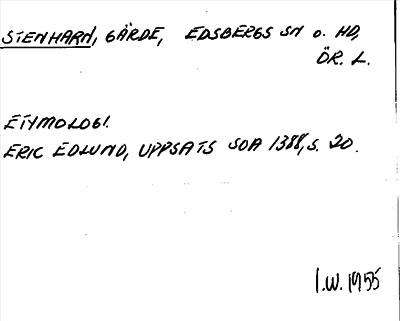 STENHARN, GÄRDE, EDSBERGS SN O. HD,
ÖR. L.
ETYMOLOGI.
ERIC EDLUND, UPPSATS SOA 1388, S. 20.
I.W. 1955